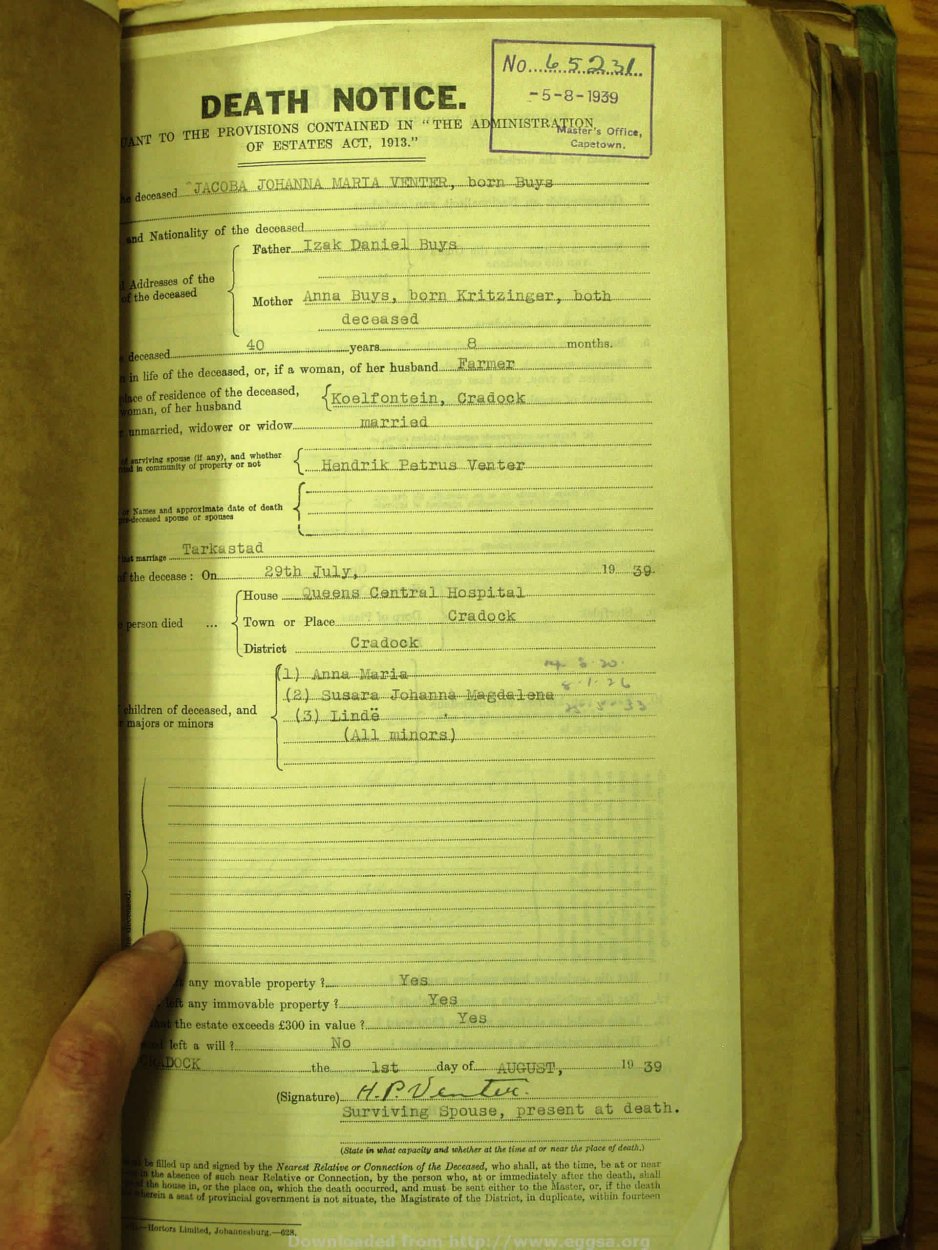 No. 65231.
-5-8-1939
Master's Office,
Capetown.
DEATH NOTICE.
ANT TO THE PROVISIONS CONTAINED IN "THE ADMINISTRATION
OF ESTATES ACT, 1913."
deceased JACOBA JOHANNA MARIA VENTER, born Buys
and Nationality of the deceased
Father Izak Daniel Buys
Addresses of the
of the deceased
Mother Anna Buys, born Kritzinger, both
deceased
deceased 40 years 8 months.
in life of the deceased, or, if a woman, of her husband Farmer
lace of residence of the deceased,
woman, of her husband
Koelfontein, Cradock
unmarried, widower or widow married
of surviving spouse (if any), and whether
in community of property or not
Hendrik Petrus Venter
of Names and approximate date of death
pre-deceased spouse or spouses
last marriage Tarkastad
of the decease: On 29th July, 19 39
House Queens Central Hospital
person died ... Town or Place Cradock
District Cradock
(1) Anna Maria
(2) Susara Johanna Magdalena 8.1.26
children of deceased, and
majors or minors
(3) Lindë
(All minors)
any movable property ? Yes
left any immovable property ? Yes
the estate exceeds £300 in value ? Yes
left a will ? No
RADOCK the 1st day of AUGUST, 19 39
(Signature) H.P. Venter.
Surviving Spouse, present at death.
(State in what capacity and whether at the time at or near the place of death.)
be filled up and signed by the Nearest Relative or Connection of the Deceased, who shall, at the time, be at or near
in the absence of such near Relative or Connection, by the person who, at or immediately after the death, shall
of the house in, or the place on, which the death occurred, and must be sent either to the Master, or, if the death
wherein a seat of provincial government is not situate, the Magistrate of the District, in duplicate, within fourteen
Hortors Limited, Johannesburg.—628.
Downloaded from http://www.eggsa.org